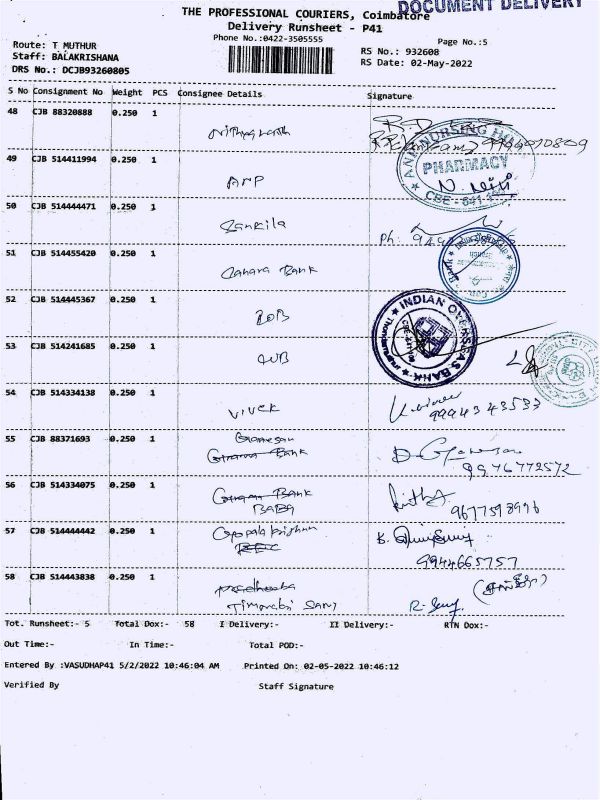 DOCUMENT DELIVERY
THE PROFESSIONAL COURIERS, Coimbatore
Delivery Runsheet - P41
Phone No.:0422-3505555
Page No.:5
Route: T MUTHUR
RS No.: 932608
Staff: BALAKRISHANA
RS Date: 02-May-2022
DRS No.: DCJB93260805
S No Consignment No Weight PCS Consignee Details Signature
48 CJB 88320888 0.250 1
49 CJB 514411994 0.250 1
PHARMACY
50 CJB 514444471 0.250 1
Ph:
51 CJB 514455420 0.250 1
Canara Bank
52 CJB 514445367 0.250 1
BOB
INDIAN OVERSEAS BANK
53 CJB 514241685 0.250 1
54 CJB 514334138 0.250 1
Vivek
9994343533
55 CJB 88371693 0.250 1
Ganesan
9976772572
56 CJB 514334075 0.250 1
Bank
BABA
57 CJB 514444442 0.250 1
Gopalakrishnan
9944665757
58 CJB 514443838 0.250 1
Tot. Runsheet:- 5 Total Dox:- 58 I Delivery:- II Delivery:- RTN Dox:-
Out Time:- In Time:- Total POD:-
Entered By :VASUDHAP41 5/2/2022 10:46:04 AM Printed On: 02-05-2022 10:46:12
Verified By Staff Signature